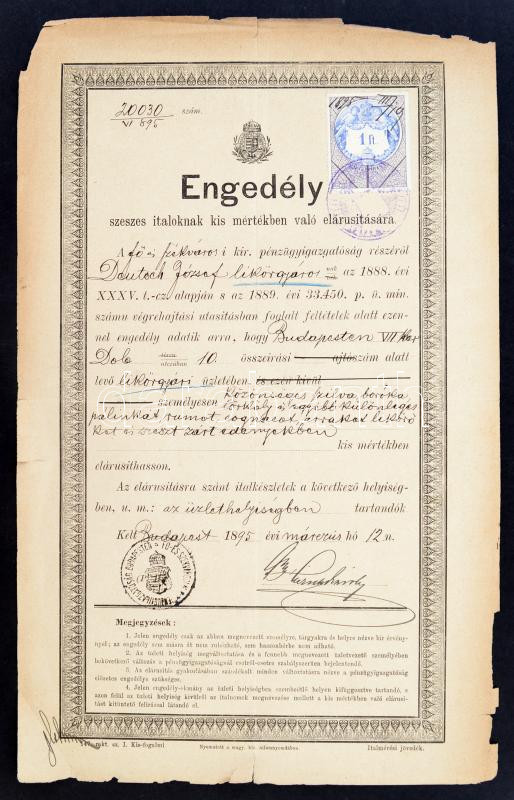 20030 szám.
VI 896
1895 III/19
1 ft.
Engedély
szeszes italoknak kis mértékben való elárusitására.
A fő és székváros i kir. pénzügyigazgatóság részéről
Deutsch József likörgyáros nak az 1888. évi
XXXV. t.-cz. alapján s az 1889. évi 33.450. p. ü. min.
számu végrehajtási utasitásban foglalt feltételek alatt ezen-
nel engedély adatik arra, hogy Budapesten VII ker
Dob utczában 10. összeirási ajtószám alatt
levő likörgyári üzletében, és ezen kivül
személyesen közönséges szilva, boróka
törköly és egyéb különleges
pálinkát, rumot, cognacot, arrakot, likörö
ket és szeszt zárt edényekben
kis mértékben
elárusithasson.
Az elárusitásra szánt italkészletek a következő helyiség-
ben, u. m.: az üzlethelyiségben tartandók.
Kelt Budapest 1895 évi márczius hó 12. n.
Megjegyzések:
1. Jelen engedély csak az abban megnevezett személyre, tárgyakra és helyre nézve bir érvény-
nyel; az engedély sem másra át nem ruházható, sem haszonbérbe nem adható.
2. Az üzleti helyiség megváltoztatása és a fennebb megnevezett üzletvezető személyében
bekövetkező változás a pénzügyigazgatóságnál esetről-esetre szabályszerüen bejelentendő.
3. Az elárusitás gyakorlásában szándékolt minden változtatásra nézve a pénzügyigazgatóság
előzetes engedélye szükséges.
4. Jelen engedély-okmány az üzleti helyiségben szembeötlő helyen kifüggesztve tartandó, s
azon felül az üzleti helyiség kivülről az italoknak megnevezése mellett a kis mértékben való elárusi-
tást kitüntető felirással látandó el.
rakt. sz. I. Kis-fogalmi
Nyomatott a magy. kir. államnyomdában.
Italmérési jövedék.